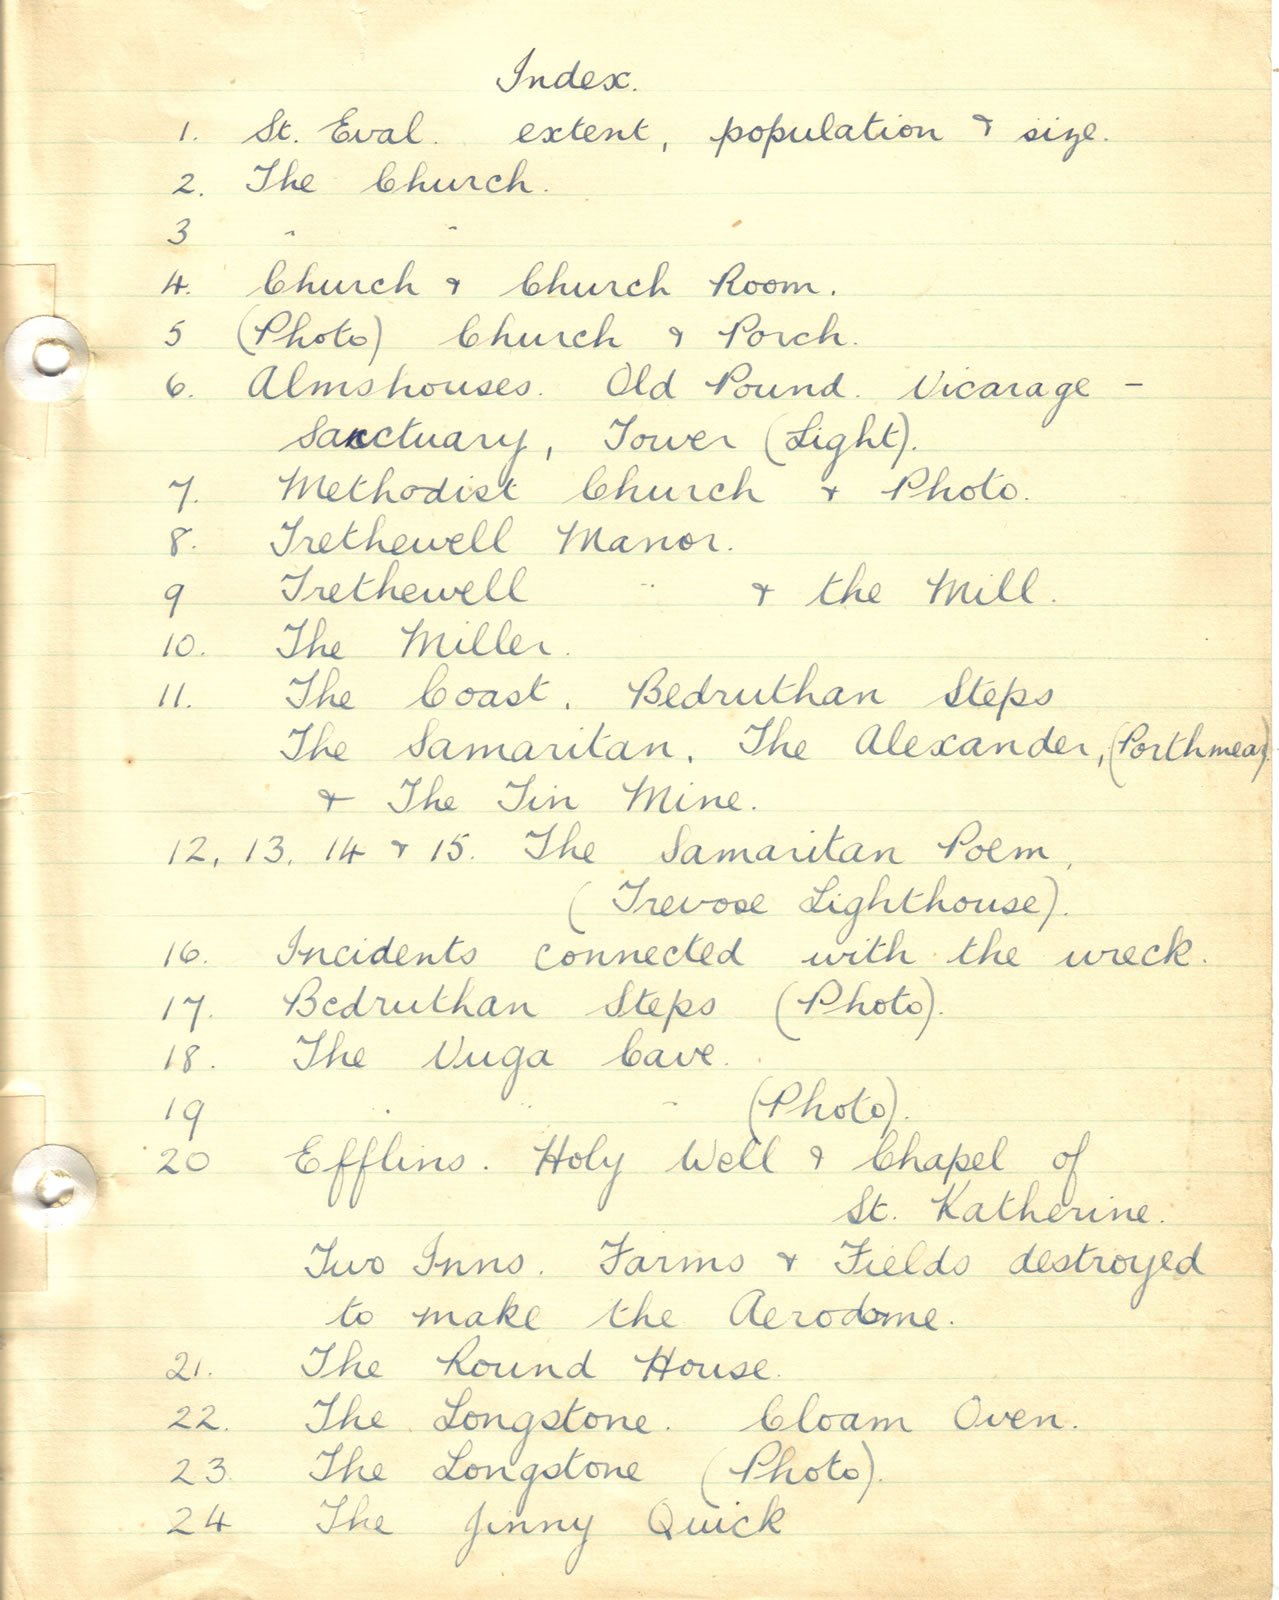 Index.
1. St. Eval. extent, population & size.
2. The Church.
3 " "
4. Church & Church Room.
5 (Photo) Church & Porch.
6. Almshouses. Old Pound. Vicarage -
Sanctuary, Tower (Light).
7. Methodist Church & Photo.
8. Trethewell Manor.
9 Trethewell " & the Mill.
10. The Miller.
11. The Coast. Bedruthan Steps
The Samaritan. The Alexander, (Porthmear)
& The Tin Mine.
12, 13, 14 & 15. The Samaritan Poem,
(Trevose Lighthouse).
16. Incidents connected with the wreck.
17. Bedruthan Steps (Photo).
18. The Vuga Cave.
19 " " " (Photo).
20 Efflins. Holy Well & Chapel of
St. Katherine.
Two Inns. Farms & Fields destroyed
to make the Aerodome.
21. The Round House.
22. The Longstone. Cloam Oven.
23. The Longstone (Photo).
24 The Jinny Quick